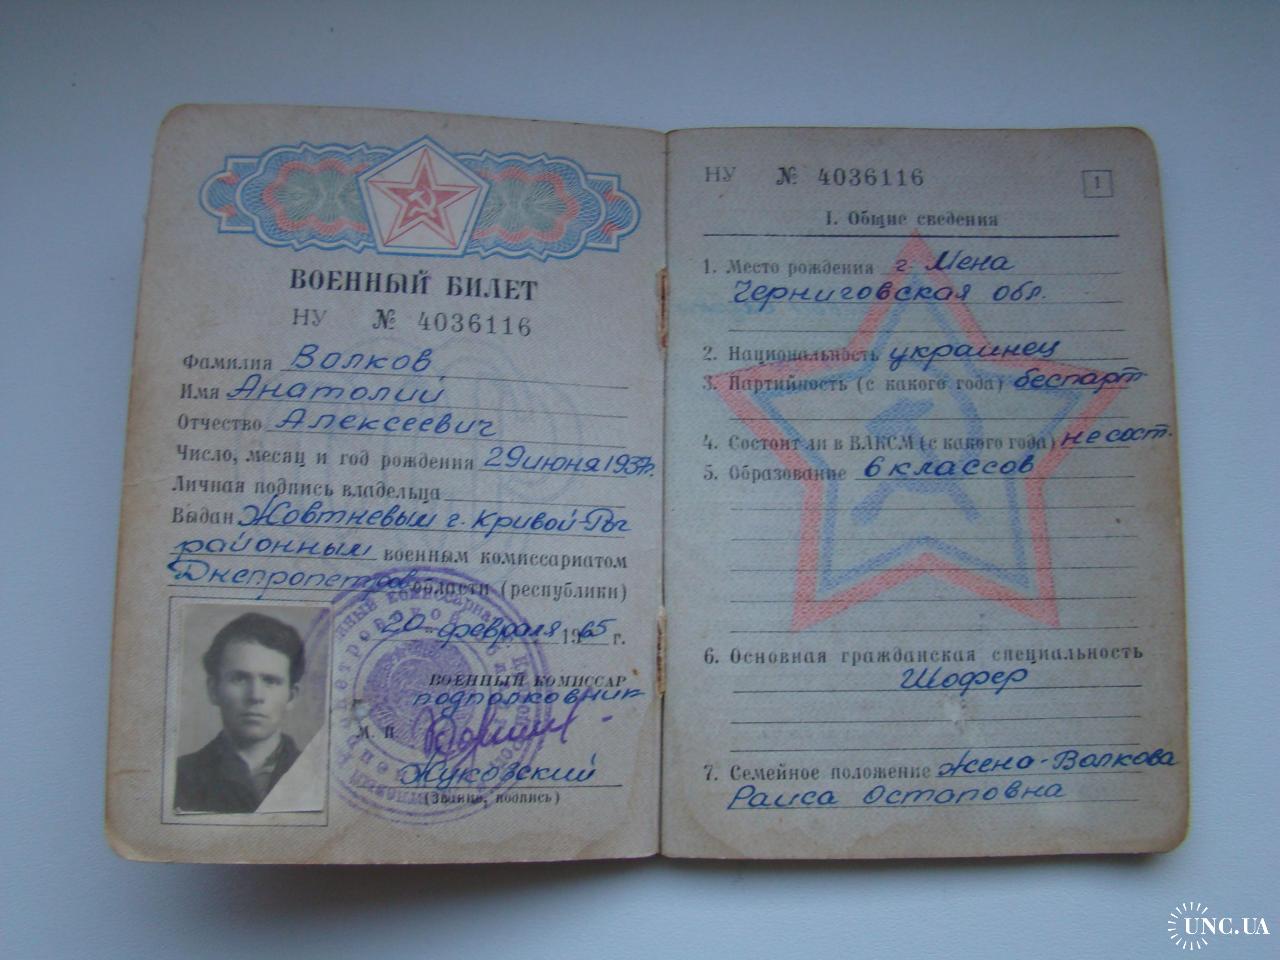 ВОЕННЫЙ БИЛЕТ
НУ № 4036116
Фамилия Волков
Имя Анатолий
Отчество Алексеевич
Число, месяц и год рождения 29 июня 1937г.
Личная подпись владельца
Выдан Жовтневым г. Кривой-Рог
районным военным комиссариатом
Днепропетров области (республики)
20 февраля 1965 г.
ВОЕННЫЙ КОМИССАР
подполковник
М. П.
Жуковский
(Звание, подпись)
НУ № 4036116
1
I. Общие сведения
1. Место рождения г. Мена
Черниговская обл.
2. Национальность украинец
3. Партийность (с какого года) беспарт
4. Состоит ли в ВЛКСМ (с какого года) не сост.
5. Образование 6 классов
6. Основная гражданская специальность
Шофер
7. Семейное положение жена - Волкова
Раиса Остаповна
UNC.UA